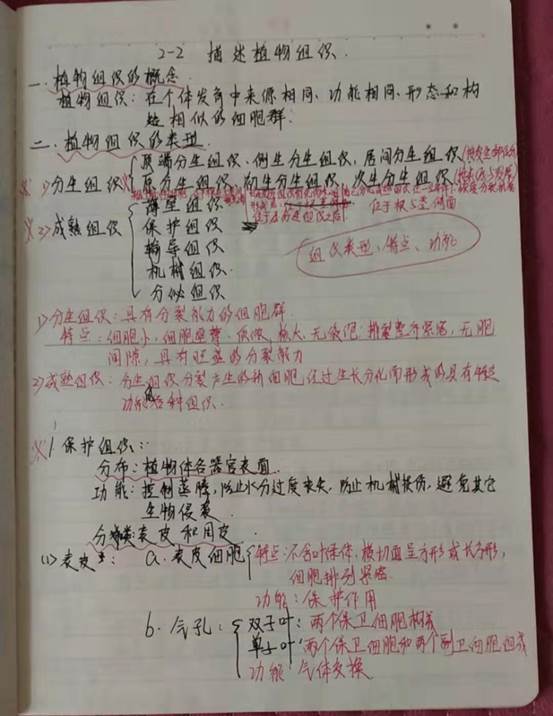 2-2 描述植物组织.
一.植物组织的概念
植物组织:在个体发育中来源相同、功能相同、形态和构
造相似的细胞群.
二.植物组织的类型
※ 1)分生组织 顶端分生组织、侧生分生组织、居间分生组织
原分生组织、初生分生组织、次生分生组织
位于根与茎侧面
※ 2)成熟组织 薄壁组织
保护组织
输导组织
机械组织.
分泌组织
组织类型、特点、功能
1)分生组织:具有分裂能力的细胞群.
特点:细胞小,细胞壁薄、核大,无液泡;排列整齐紧密,无胞
间隙,具有旺盛的分裂能力
2)成熟组织:分生组织分裂产生的新细胞经过生长分化而形成的具有特定
功能各种组织.
※ 1 保护组织:
分布:植物体各器官表面.
功能:控制蒸腾,防止水分过度丧失,防止机械损伤,避免其它
生物侵袭.
分类:表皮和周皮.
(1)表皮: a.表皮细胞 特点:不含叶绿体,横切面呈方形或长方形,
细胞排列紧密.
功能:保护作用
b.气孔: 双子叶:两个保卫细胞构成
单子叶:两个保卫细胞和两个副卫细胞组成
功能:气体交换